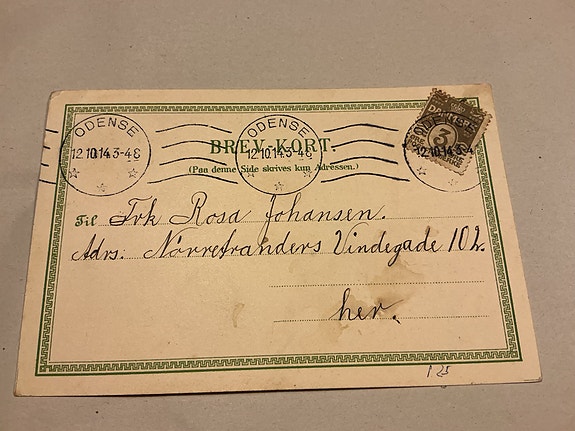 ODENSE
12.10.14.3-4E
ODENSE
12.10.14.3-4E
BREV-KORT.
(Paa denne Side skrives kun Adressen.)
DANMARK
3
ØRE
12.10.14.3-4
Til Frk Rosa Johansen.
Adrs. Nørretranders Vindegade 102.
her.